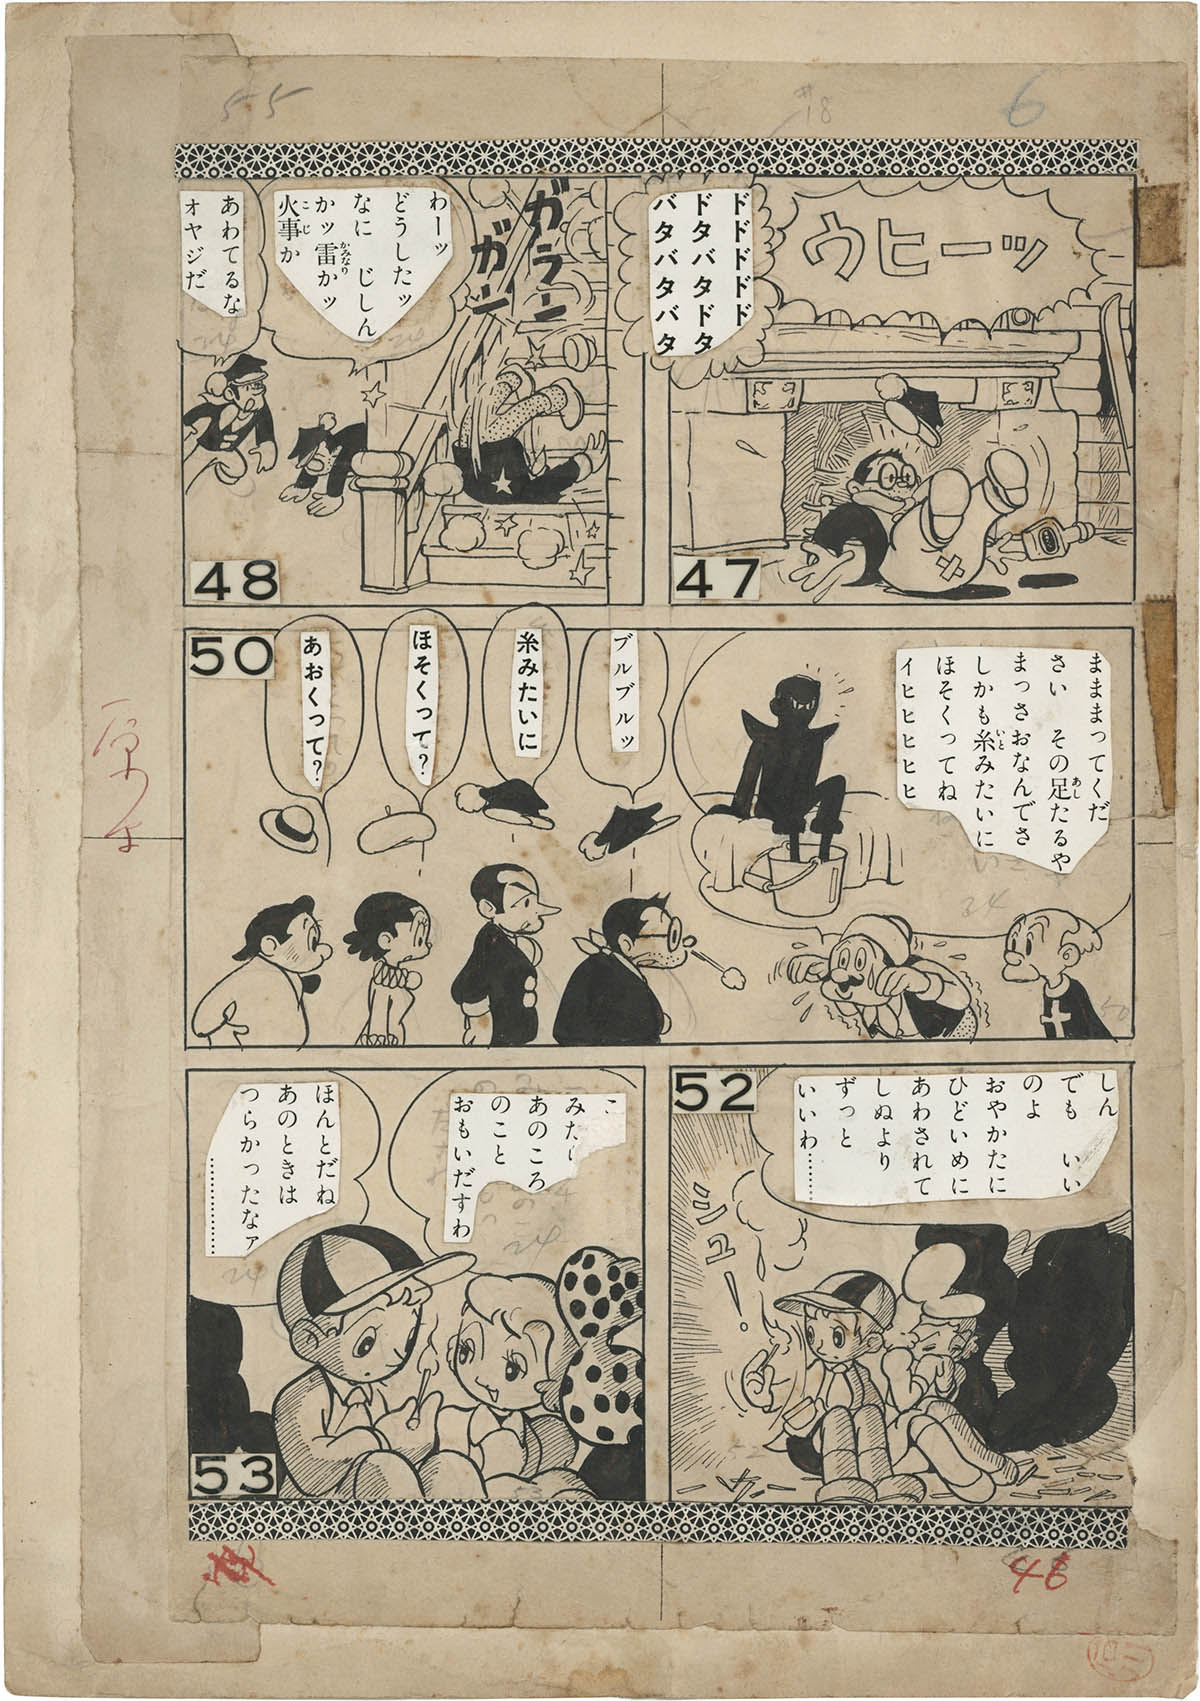 55
#18
6
ウヒーッ
ドドドドド
ドタバタドタ
バタバタバタ
47
ガラン
ガガン
わーッ
どうしたッ
なに じしん
かッ雷かッ
かみなり
火事か
こじ
あわてるな
オヤジだ
48
まままってくだ
さい その足たるや
あし
まっさおなんでさ
しかも糸みたいに
いと
ほそくってね
イヒヒヒヒヒ
ブルブルッ
糸みたいに
ほそくって?
あおくって?
50
しん
でも いい
のよ
おやかたに
ひどいめに
あわされて
しぬより
ずっと
いいわ……
シュー!
52
こ
みた
あのころ
のこと
おもいだすわ
ほんとだね
あのときは
つらかったなァ
…………
53
46